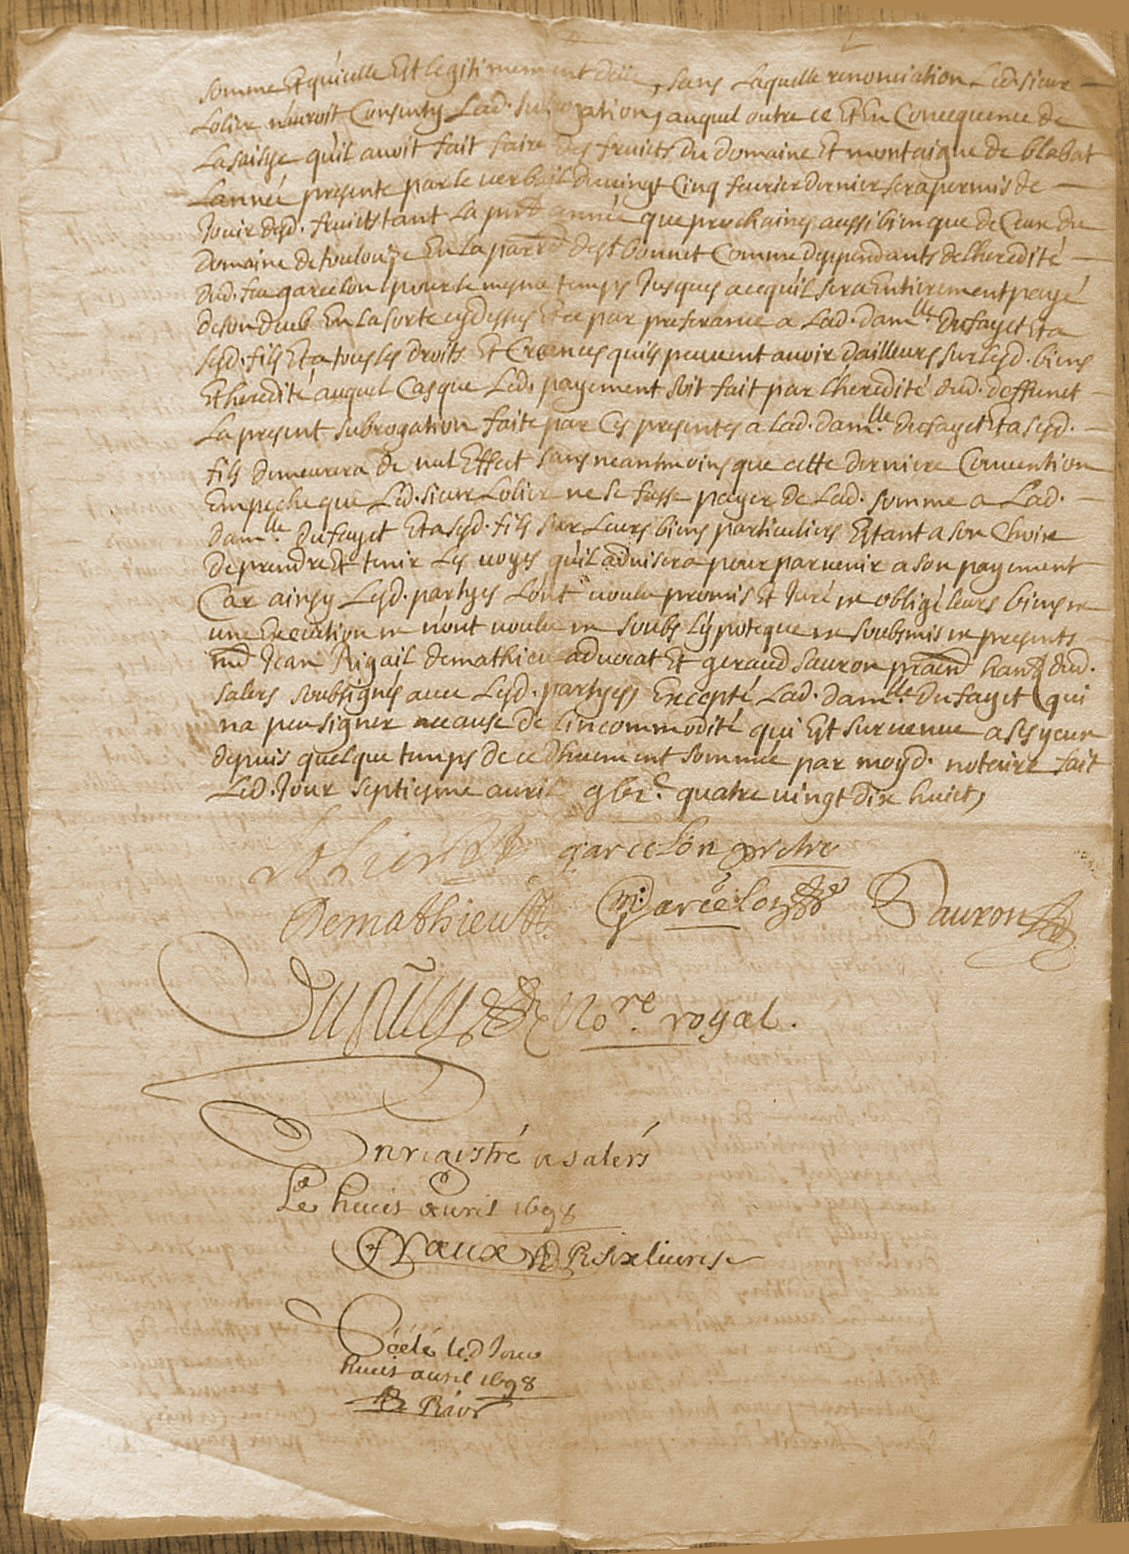 somme Et qu'icelle Est legitimement deüe, sans Laquelle renonciation Led. sieur
Lolier n'auroit Consenty Lad. subrogation, auquel outre ce Et En Consequence de
La saisye qu'il avoit fait faire des fruicts du domaine Et montaigne de blabat
L'année presente par le verbail du vingt Cinq fevrier dernier sera permis de
Jouir desd. fruicts tant La pnte année que prochaines aussi bien que de Ceux du
Domaine de touloize En la parre de st bonnet Comme deppendants de l'heredité
dud. feu garcelon pour le mesme temps Jusques a ce qu'il sera Entierement payé
de son deub En La sorte cy dessus Et ce par preferance a Lad. damlle dufayet Et a
sesd. fils Et a tous les droits Et Creances quils peuvent avoir d'ailleurs sur lesd. biens
Et heredité, auquel Cas que Led. payement soit fait par l'heredité dud. deffunct
La present subrogation faite par Ces presentes a Lad. damlle. dufayet Et a sesd.
fils demeurera de nul Effect sans neantmoins que cette derniere Convention
Empeche que Led. sieur Lolier ne se fasse payer de Lad. somme a Lad.
damlle. dufayet Et a sesd. fils sur Leurs biens particuliers Estant a son Choix
de prendre Et tenir Les voyes qu'il advisera pour parvenir a son payement
Car ainsy Lesd. partyes L'ont voulu promis Et Juré ne obligé leurs biens ne
une Execution ne n'ont voulu ne soubs l'ypoteque ne soubsmis ne presents
me Jean Rigail demathieu advocat Et geraud sauron praen hant dud.
salers soubsignés avec Lesd. partyes, Excepté Lad. damlle. Dufayet (qui
na peu signer a cause de l'incommodité qui Est survenue a ses yeux
depuis quelque temps de ce dheuement sommée par moyd. notaire fait
Led. Jour septiesme avril 9br.c quatre vingt dix huict,
Lolier garcelon prêtre
Demathieu Garcelon Sauron
Nore. royal.
Enregistré a salers
Le huict avril 1698
R six livres
Scélé led Jour
huict avril 1698